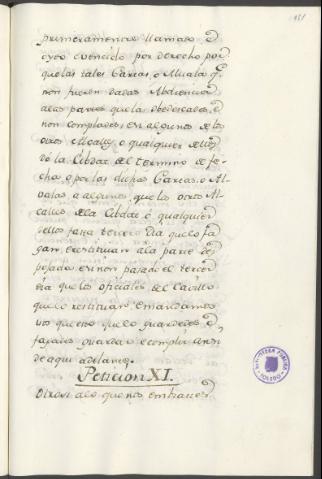 181
primeramente llamado e
oydo e vencido por derecho por
que las tales Cartas, o Alvala q.
non fueren dadas Abdiencia
a las partes que la obedescades, e
non complades, en algunos de los
otros Alcalles, o qualquier dellos
de la Cibdat del termino de fe-
cho, o por las dichas Cartas, o Al-
valas a algunos que los otros Al-
calles de la Cibdat o qualquier
dellos fasta tercero dia que lo fa-
gan, e restituian a la parte des-
pojada, e si non pasado el tercer
dia que los oficiales del Cavillo
que lo restituian, e mandamos
vos que esto que lo guardedes e
fagades guardar e complir ansi
de aqui adelante.
Peticion XI.
Otrosi a lo que nos embiastes
BIBLIOTECA PUBLICA TOLEDO